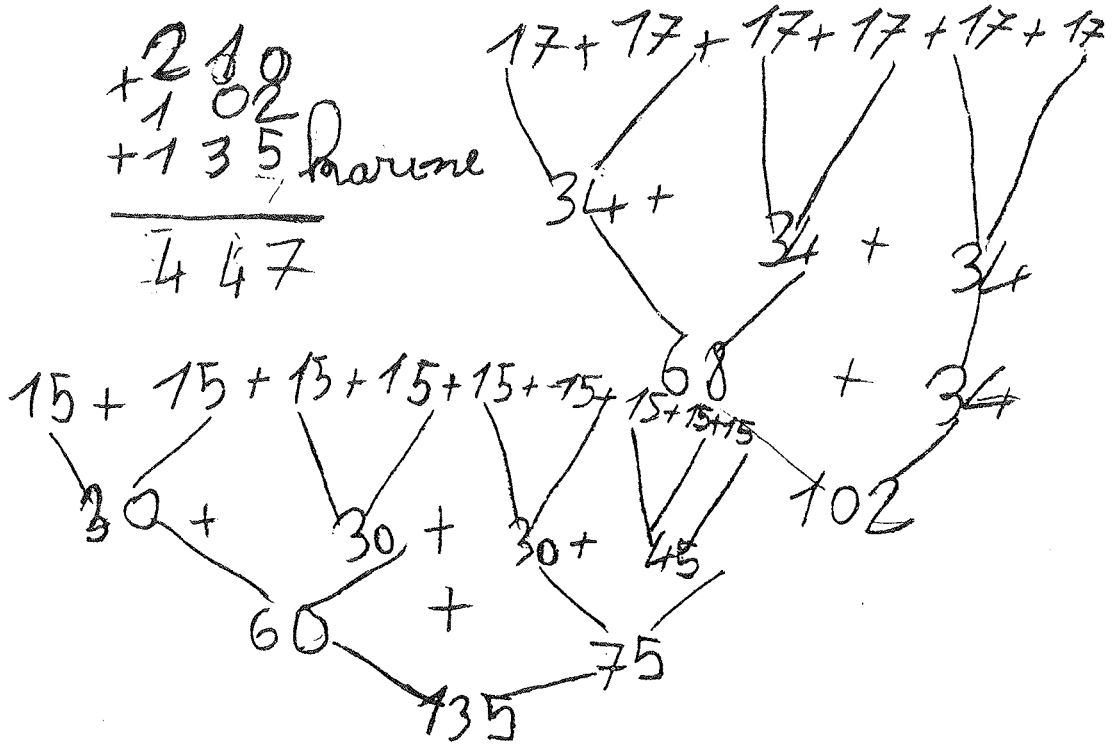 + 210
102
+ 135 Marine
447
17 + 17 + 17 + 17 + 17 + 17
34 + 34 + 34
68 + 34
102
15 + 15 + 15 + 15 + 15 + 15 + 15 + 15 + 15
30 + 30 + 30 + 45
60 + 75
135